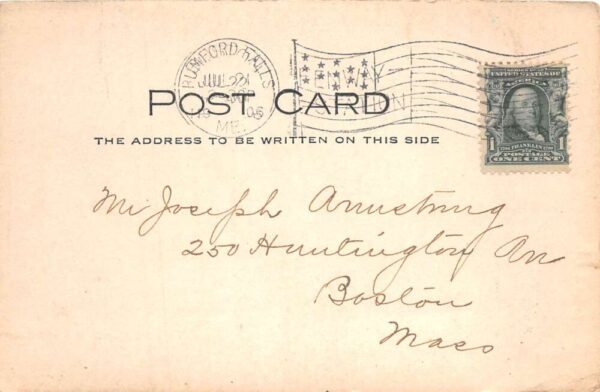 RUMFORD FALLS
JUL 22
1905
ME.
POST CARD
THE ADDRESS TO BE WRITTEN ON THIS SIDE
SERIES 1902
UNITED STATES OF AMERICA
FRANKLIN
1 POSTAGE 1
ONE CENT
Mr Joseph Armstrong
250 Huntington Av
Boston
Mass